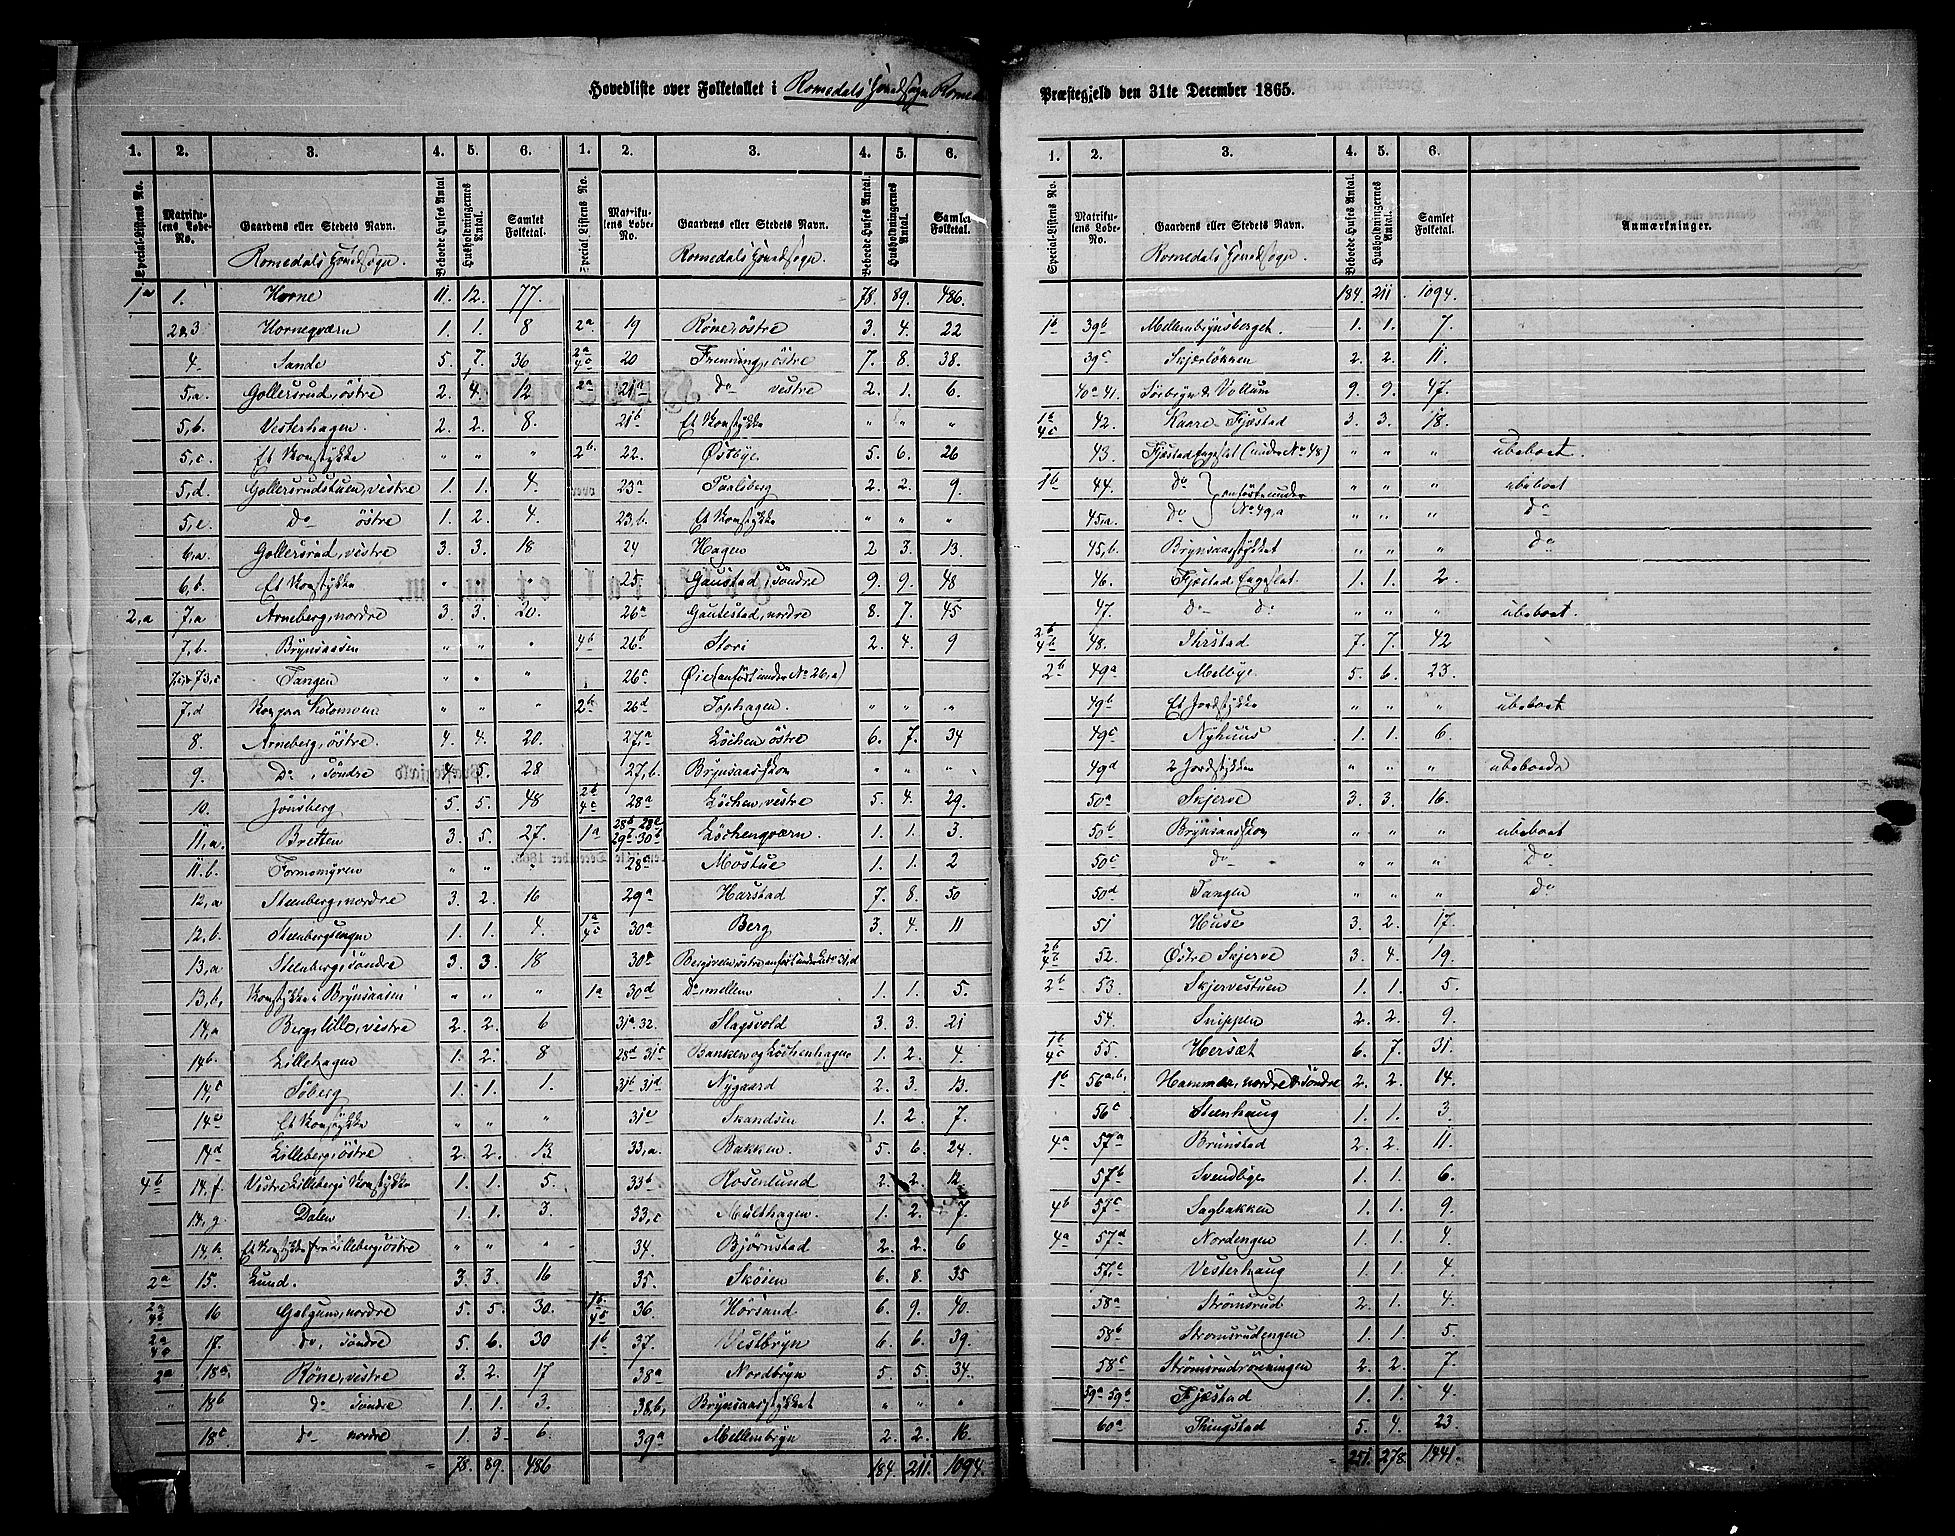 Hovedliste over Folketallet i Romedals Hovedsogn Romed
Præstegjeld den 31te December 1865.
1. 2. 3. 4. 5. 6. 1. 2. 3. 4. 5. 6.
Special-Listens No. Matrikulens Løbe-No. Gaardens eller Stedets Navn. Beboede Huses Antal Husholdningernes Antal. Samlet Folketal.
Romedals Hovedsogn.
1a 1. Horne 11. 12. 77.
2 a, 3 Horneqværn 1. 1. 8
4. Sande 5. 7. 36
5, a. Gollersrud, östre 2. 4. 12
5, b. Vesterhagen. 2. 2. 8.
5, c. Et Konstykke " " "
5, d. Gollersrudstuen, vestre 1. 1. 4.
5, e. Do östre 1. 2. 4.
6, a. Gollersrud, vestre 3. 3. 18
6, b. Et Konstykke " " "
2, a 7, a Arneberg, nordre 3. 3. 20.
7, b. Brynsaasen " " "
Tangen " " "
7, d " " "
8. Arneberg, östre. 4. 4. 20.
9. Do, Söndre 4. 5. 28
10. Jönsberg 5. 5. 48
11, a. Bretten 3. 5. 27.
11. b. Formomyren " " "
12, a Steenberg, nordre 3. 2. 16
12, b. Steenbergsengen 1. 1. 4.
13, a Steenberg, söndre 3. 3. 18
13, b, Konstykke i Brynsaasen " " "
14, a Berg, lille, vestre 2. 2. 6
14 b. Lillehagen 1. 2. 8
14, c Soberg 1. 1. 1.
14 e Et Konstykke " " "
14 d Lilleberg, östre 2. 2. 13
4b 14, f Vestre Lillebergs Konstykke 1. 1. 5.
14, g. Dalen 1. 1. 3.
14, h Et Konstykke fra Lilleberg, östre " " "
2a 15. Lund. 3. 3. 16
2a 4b 16 Galgum, nordre 5. 5. 30.
17. do, Söndre 5. 6. 30
2a 18a, Röne, vestre 3. 2. 17
" 18b do Söndre 1. 1. 3.
18c do nordre 1. 3 6.
78. 89. 486
Special-Listens No. Matrikulens Løbe-No. Gaardens eller Stedets Navn. Beboede Huses Antal. Husholdningernes Antal. Samlet Folketal.
Romedals Hovedsogn.
78. 89. 486.
2a 19 Röne, östre 3. 4. 22
2a 4c 20 Frenning, östre 7. 8. 38.
2a 21a do vestre 2. 1. 6.
21b Et Konstykke " " "
2b 22. Østbye. 5. 6. 26
23a Paalsberg 2. 2. 9.
23, b. Et Konstykke " " "
24 Hagen 2 3. 13.
25. Gaustad, Söndre 9. 9. 48
26a Gaustad, nordre 8. 7. 45
4b 26b Stori 2. 4. 9
26c Øie (anfört under No 26, a)
2b 26d Tophagen. " " "
27, a Löchen, östre 6. 7. 34
27, b. Brynsaasskov " " "
2b 4c 28a Löchen, vestre 5. 4. 29.
1a 28b 28c 29c 30b Löchenqværn. 1. 1. 3.
Mostue 1. 1. 2
29a Harstad 7. 8. 50
1a 4c 30a Berg 3. 4. 11
1a 30d Do mellem 1. 1. 5.
31a 32. Slagsvold 3. 3. 21
28d 31c Bakken og Löchenhagen 1. 2. 4.
31b 31d Nygaard 2. 3. 13.
31e Skandsen 1. 2. 7.
33, a. Bakken. 5. 6. 24.
33b Rosenlund 2. 2. 12.
33, c Multhagen. 1. 2. 7
34. Björnstad 2. 2. 6
35. Sköien 6. 8. 35
1b 4c 36 Hörsand 6. 9. 40.
1b 37. Vestbryn 6. 6. 39.
38a Nordbryn 5. 5. 34.
38, b, Brynsaasstykket " " "
39a Mellembryn 2. 2. 16.
184. 211. 1094.
1. 2. 3. 4. 5. 6.
Special-Listens No. Matrikulens Løbe-No. Gaardens eller Stedets Navn. Beboede Huses Antal. Husholdningernes Antal. Samlet Folketal. Anmærkninger.
Romedals Hovedsogn.
184. 211. 1094.
1b 39b Mellembrynsberget 1. 1. 7.
39c Skjærlökken 2. 2. 11.
40a 41. Sörbryn & Vollum 9. 9. 47.
1b 4c 42. Kaare Fjæstad 3. 3. 18.
43. Fjæstad Engeslet (under No 48) " " " ubeboet.
1b 44. Do anförte under " " " ubeboet
45, a. Do No 49, a " " " Do
45, b. Brynsaasstykket " " " Do
46. Fjæstad Engeslet. 1. 1. 2.
47. do do " " " ubeboet.
2b 4b 48. Ihrstad 7. 7. 42
2b 49a Melbye. 5. 6. 23.
49b Et Jordstykke " " " ubeboet
49c Nyhuus 1. 1. 6.
49d 2 Jordstykker " " " ubeboede
50a Skjerve 3. 3. 16.
50b Brynsaasskov " " " ubeboet
50c Do " " " Do
50d Tangen " " " Do
51 Huse 3. 2. 17.
52. Østre Skjerve 3. 4. 19.
2b 53. Skjervestuen 1. 1. 5.
54. Snippen 2. 2. 9.
1b 4c 55. Hersæt 6. 7. 31.
1b 56a, b, Hammer, nordre & söndre 2. 2. 14.
56c Steenhaug 1. 1. 3
4a 57a Brunstad 2. 2. 11.
57b Svendbye 1. 1. 6
4b 57c Sagbakken 1. 1. 9
4a 57d Nordengen 1. 1. 4.
57, e Vesterhaug 1. 1. 4.
58a Strömsrud 2. 1. 4.
58b Strömsrudengen 1. 1. 5.
58c Strömsrudröningen 2. 2. 7
59a 59b Fjæstad 1. 1. 4.
60a Thingstad 5. 4. 23
251. 278. 1441.